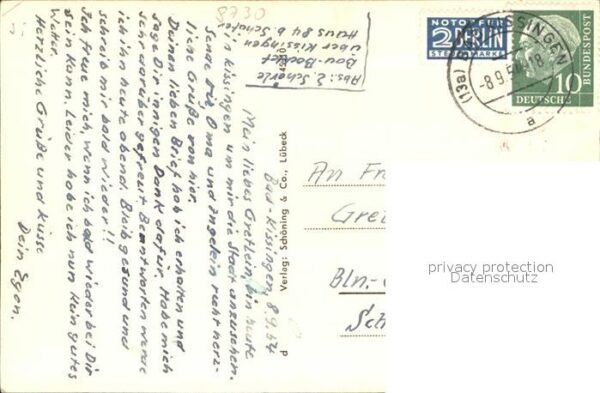 8730
Abs: E. Scherle
Bad-Bocklet
über Kissingen
Haus 84 b. Schäfer
NOTOPFER
2 BERLIN
STEUERMARKE
(13a) BAD KISSINGEN
-8.9.54.-18
a
DEUTSCHE
BUNDESPOST
10
Bad-Kissingen, 8.9.54
Mein liebes Gretlein, bin heute
in Kissingen um mir die Stadt anzusehen.
Sende Dir, Oma und Ingelein recht herz-
liche Grüße von hier.
Deinen lieben Brief hab ich erhalten und
sage Dir innigen Dank dafür. Habe mich
sehr darüber gefreut. Beantworten werde
ich ihn heute abend. Bleib gesund und
schreib mir bald wieder!!
Ich freue mich, wenn ich bald wieder bei Dir
sein kann. Leider habe ich nun kein gutes
Wetter.
Herzliche Grüße und Küsse
Dein Egon.
Verlag: Schöning & Co., Lübeck
P
An Fr
Gre
Bln.-
Sch
privacy protection
Datenschutz